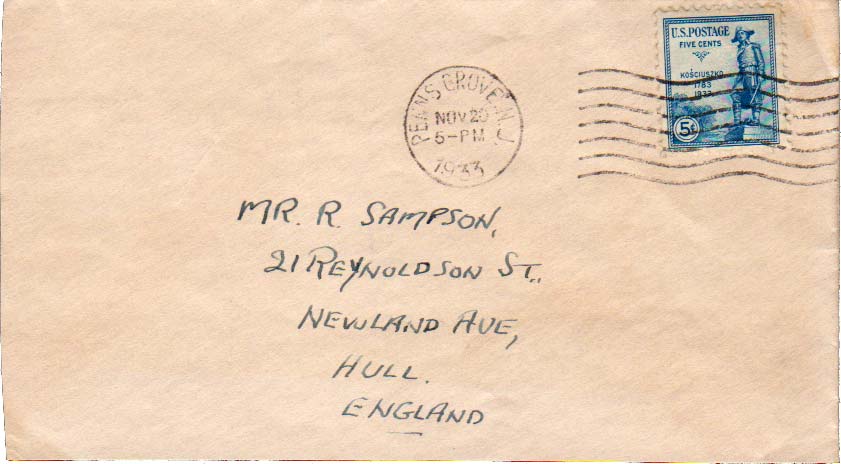 U.S. POSTAGE
FIVE CENTS
KOŚCIUSZKO
1783
1933
5¢
PENNS GROVE, N.J.
NOV 20
5-PM
1933
MR. R. SAMPSON,
21 REYNOLDSON ST.,
NEWLAND AVE,
HULL.
ENGLAND